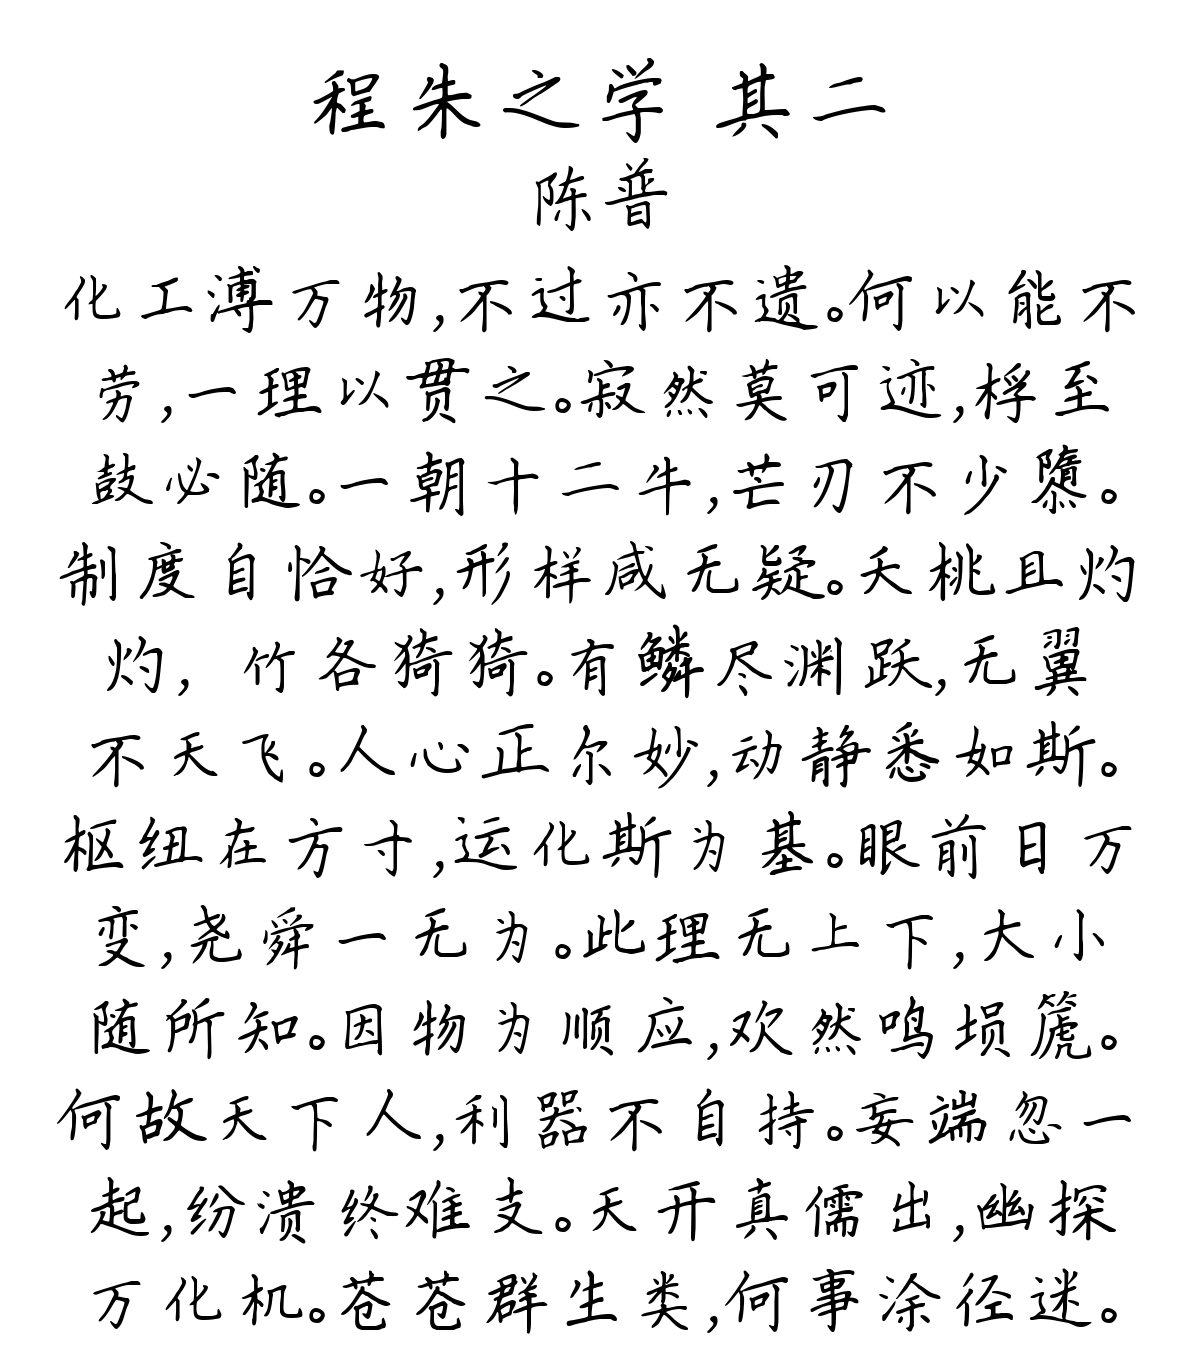 程朱之学 其二
陈普
化工溥万物,不过亦不遗。何以能不
劳,一理以贯之。寂然莫可迹,桴至
鼓必随。一朝十二牛,芒刃不少隳。
制度自恰好,形样咸无疑。夭桃且灼
灼，竹各猗猗。有鳞尽渊跃,无翼
不天飞。人心正尔妙,动静悉如斯。
枢纽在方寸,运化斯为基。眼前日万
变,尧舜一无为。此理无上下,大小
随所知。因物为顺应,欢然鸣埙篪。
何故天下人,利器不自持。妄端忽一
起,纷溃终难支。天开真儒出,幽探
万化机。苍苍群生类,何事涂径迷。